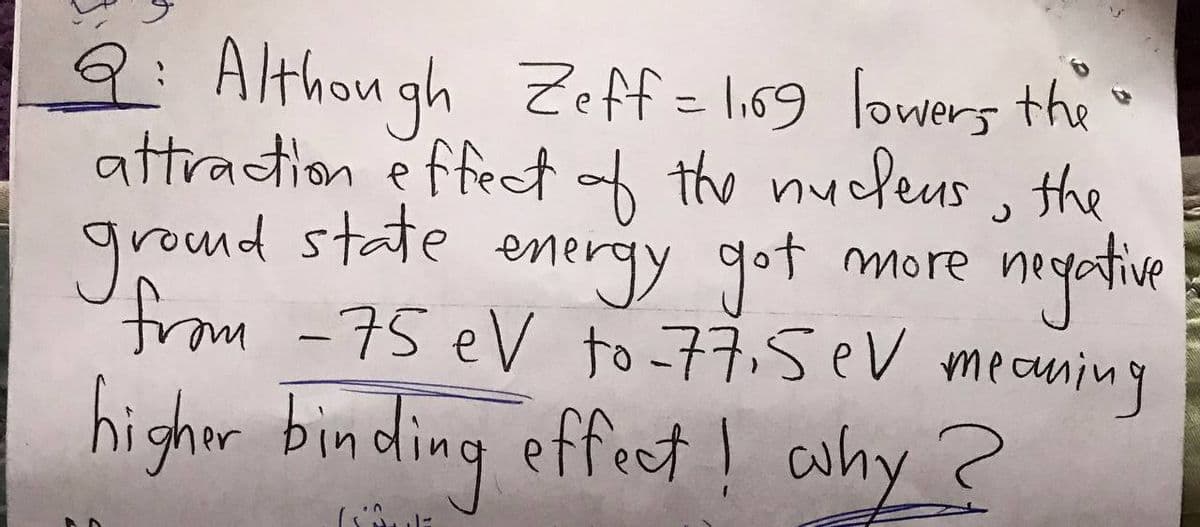 Q: Although Zeff = 1,69 lowers the
attraction effect of the nucleus, the
ground state energy got more negative
from -75 eV to -77,5 eV meaning
higher binding effect! why?